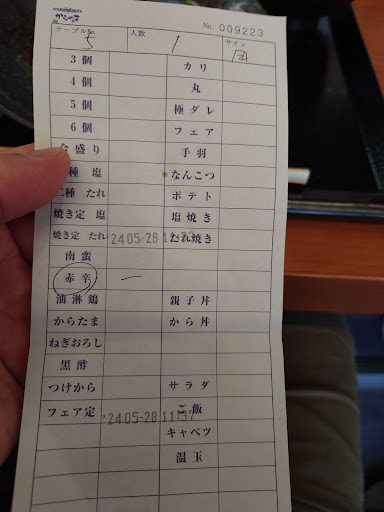 からやま
No. 009223
テーブルNo. 人数 サイン
5 1
3個 カリ
4個 丸
5個 極ダレ
6個 フェア
盛り 手羽
種 塩 なんこつ
二種 たれ ポテト
焼き定 塩 塩焼き
焼き定 たれ '24 05-28 11 たれ焼き
南蛮
赤辛 一
油淋鶏 親子丼
からたま から丼
ねぎおろし
黒酢
つけから サラダ
フェア定 '24 05-28 11:37 ご飯
キャベツ
温玉